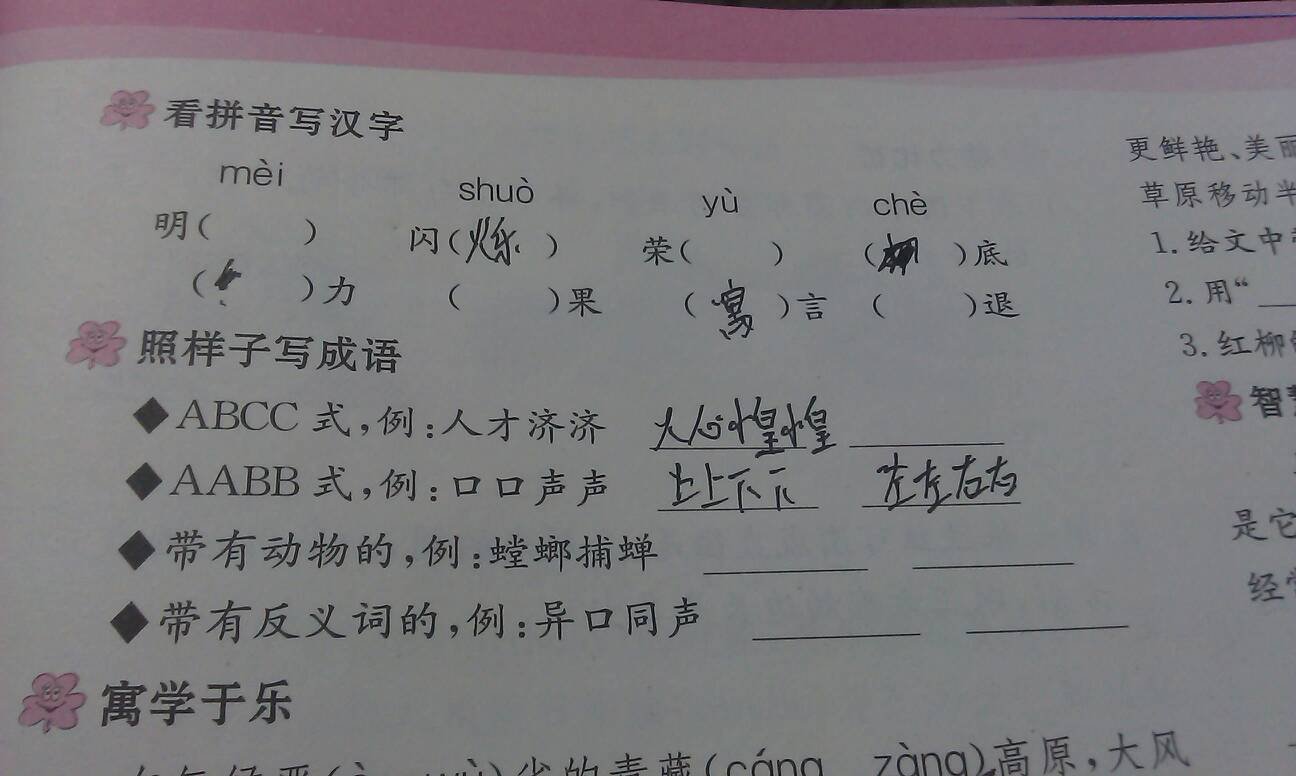 看拼音写汉字
mèi shuò yù chè
明( ) 闪(烁) 荣( ) ( )底
( )力 ( )果 (寓)言 ( )退
照样子写成语
◆ABCC式,例:人才济济 人心惶惶
◆AABB式,例:口口声声 上上下下 左左右右
◆带有动物的,例:螳螂捕蝉
◆带有反义词的,例:异口同声
寓学于乐
的青藏(cáng zàng)高原,大风
更鲜艳、美丽
草原移动半
1.给文中
2.用“
3.红柳
智
是它
经常